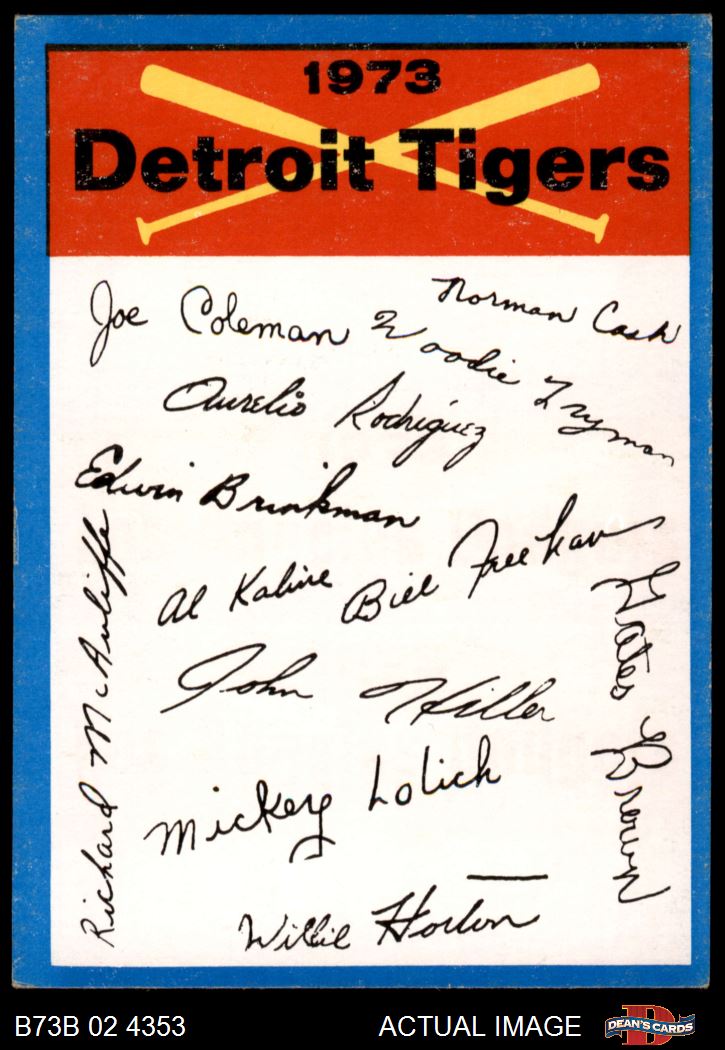 1973
Detroit Tigers
Norman Cash
Joe Coleman
Woodie Fryman
Aurelio Rodriguez
Edwin Brinkman
Bill Freehan
Al Kaline
Gates Brown
John Hiller
Richard McAuliffe
Mickey Lolich
Willie Horton
B73B 02 4353
ACTUAL IMAGE
D
DEAN'S CARDS